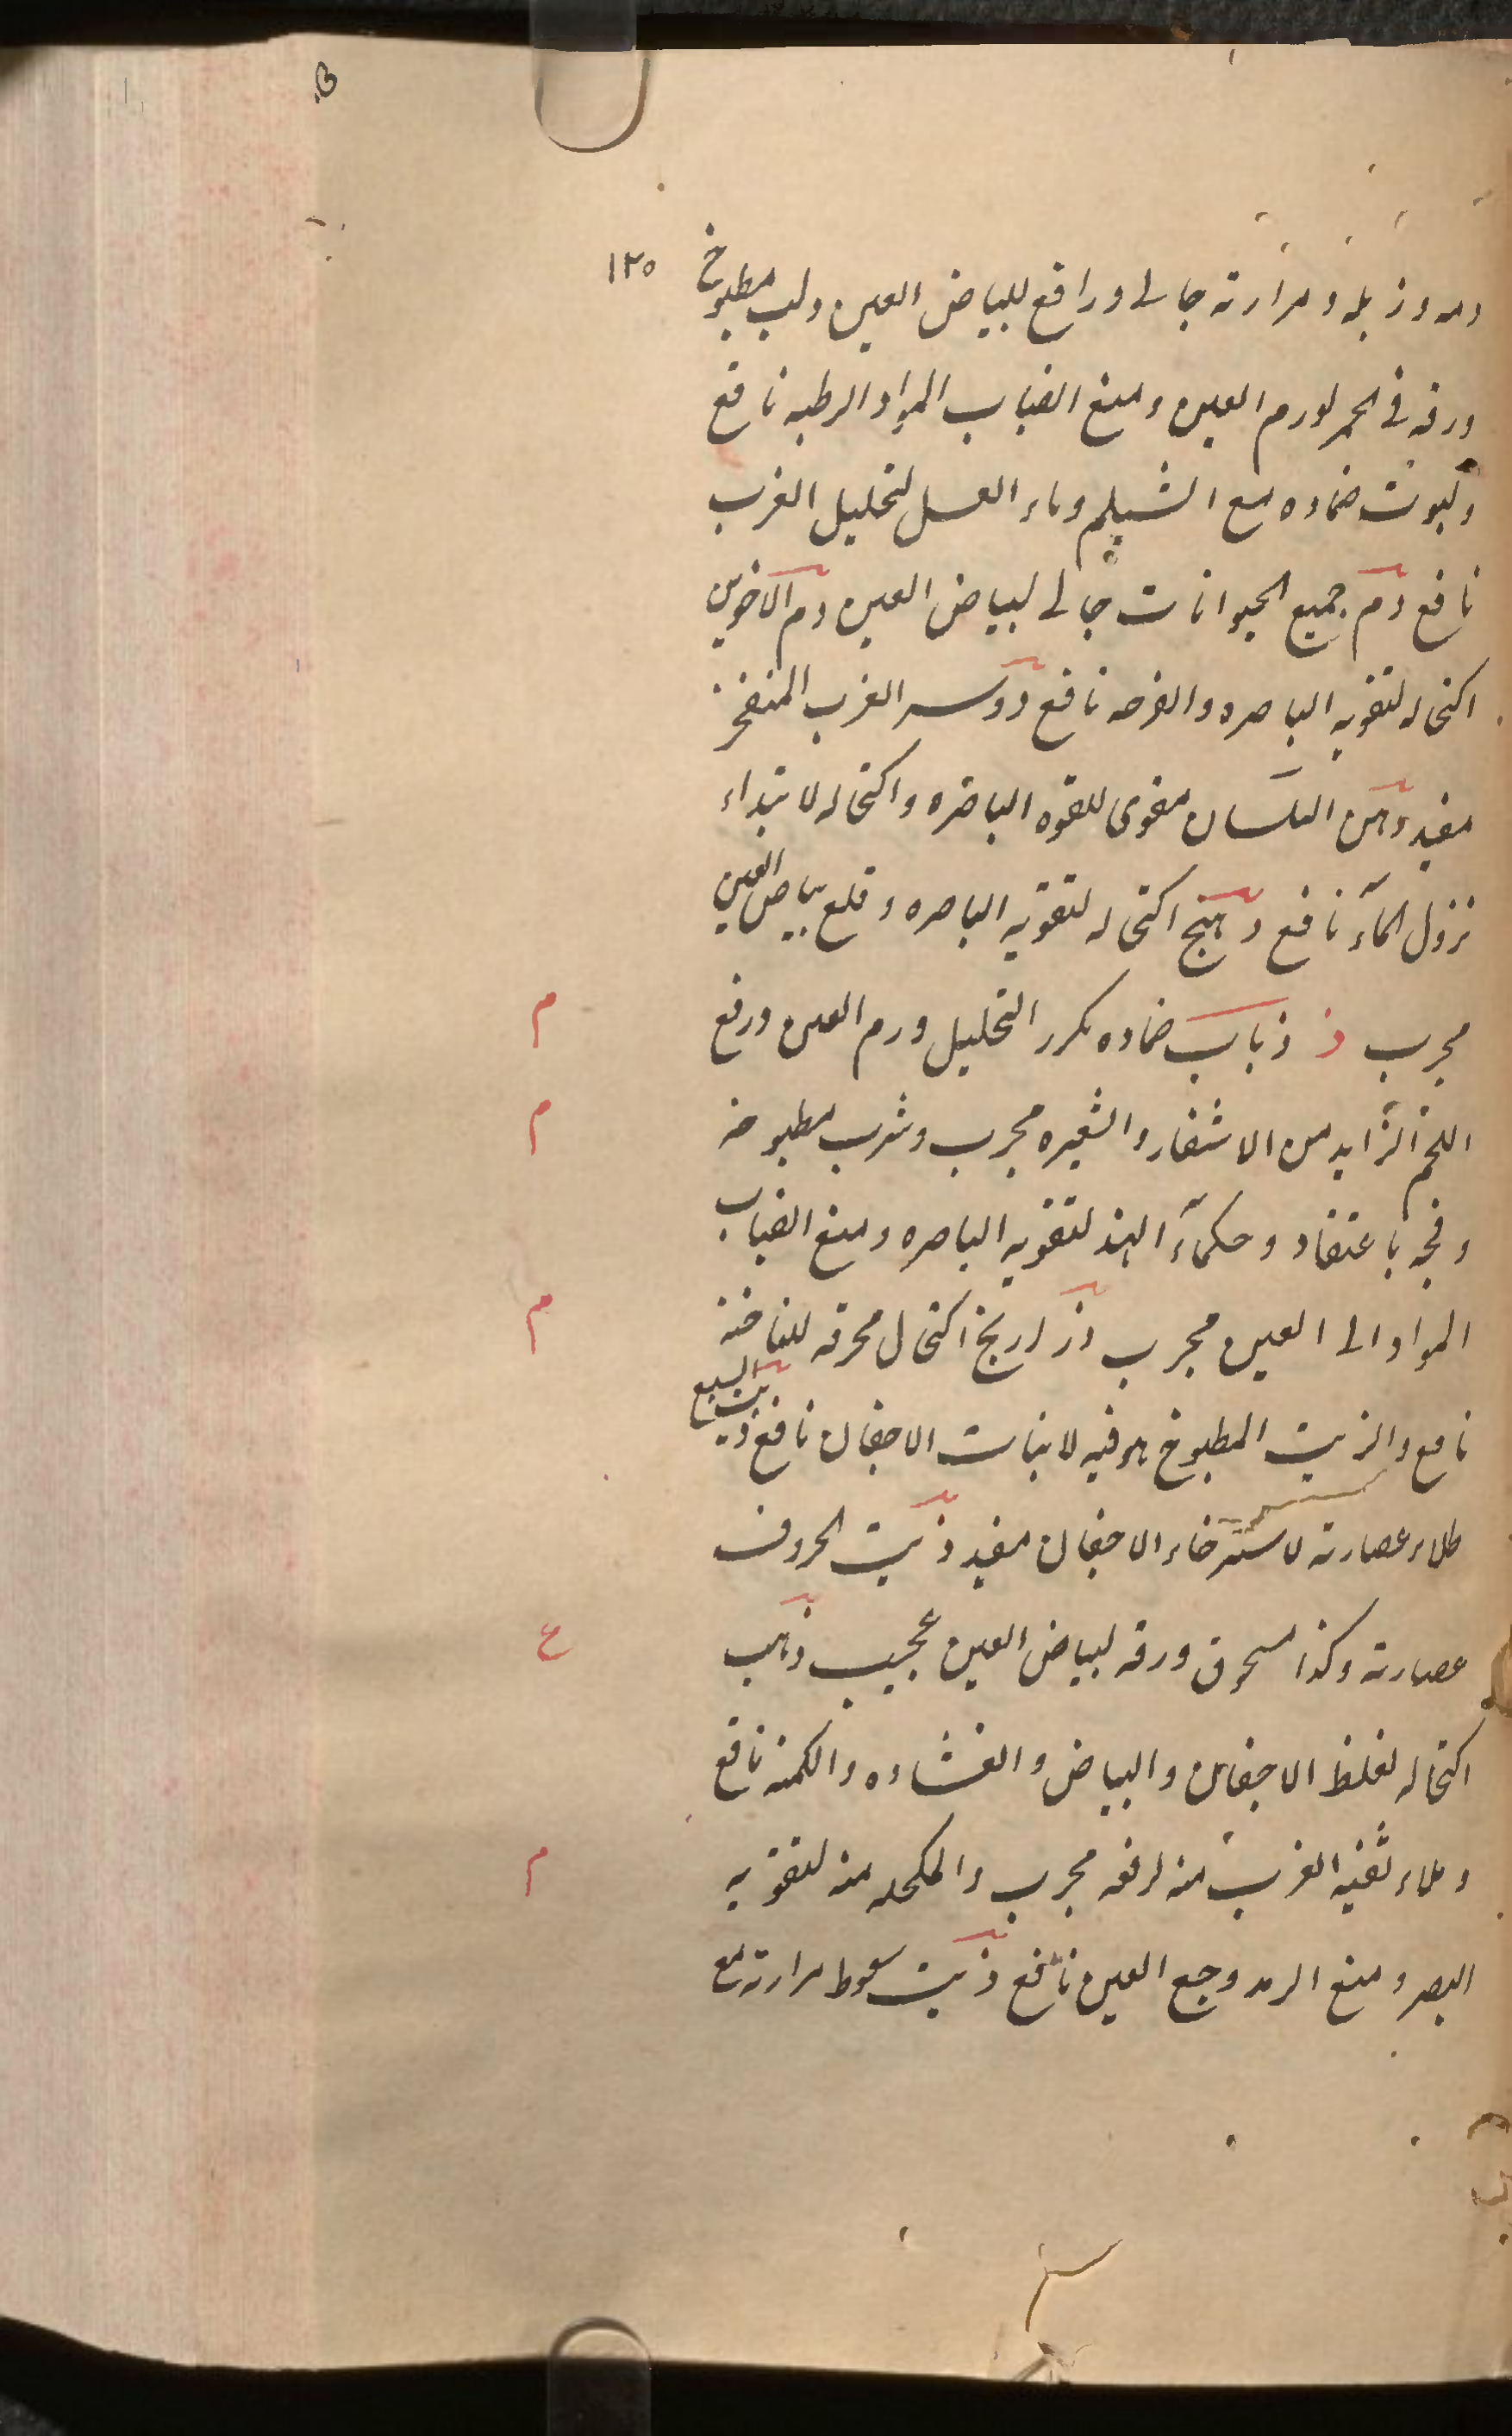 ١٢٥
دمه وزبله ومرارته جالى ورافع للبياض العين ولب مطبوخ
ورقه فى الخمر لورم العين ومنع انصباب المواد الرطبه نافع
ضماده مع الشيلم وماء العسل لتحليل الغرب
نافع دم جميع الحيوانات جالى لبياض العين دم الاخوين
اكتحاله لتقويه الباصره والقرحه نافع دوسر الغرب المنفخر
مفيد دهن البلسان مقوى للقوه الباصره واكتحاله لابتداء
نزول الماء نافع دهنج اكتحاله لتقويه الباصره وقلع بياض العين
مجرب ذ ذباب ضماده مكرر التحليل ورم العين ورفع
اللحم الزايد من الاشفار والشعيره مجرب وشرب مطبوخه
وفجه باعتقاد وحكماء الهند لتقويه الباصره ومنع انصباب
المواد الى العين مجرب ذراريح اكتحال محرقه
نافع والزيت المطبوخ هو فيه لانبات الاجفان نافع ذنب السبع
طلاء عصارته لاسترخاء الاجفان مفيد ذنب الخروف
عصارته وكذا مسحوق ورقه لبياض العين عجيب ذهب
اكتحاله لغلظ الاجفان والبياض والغشاوه والكمنه نافع
وملاء ثقبه الغرب منه لرفعه مجرب والمكحله منه لتقويه
البصر ومنع الرمد وجع العين نافع ذئب سعوط مرارته مع
م
م
م
ع
م